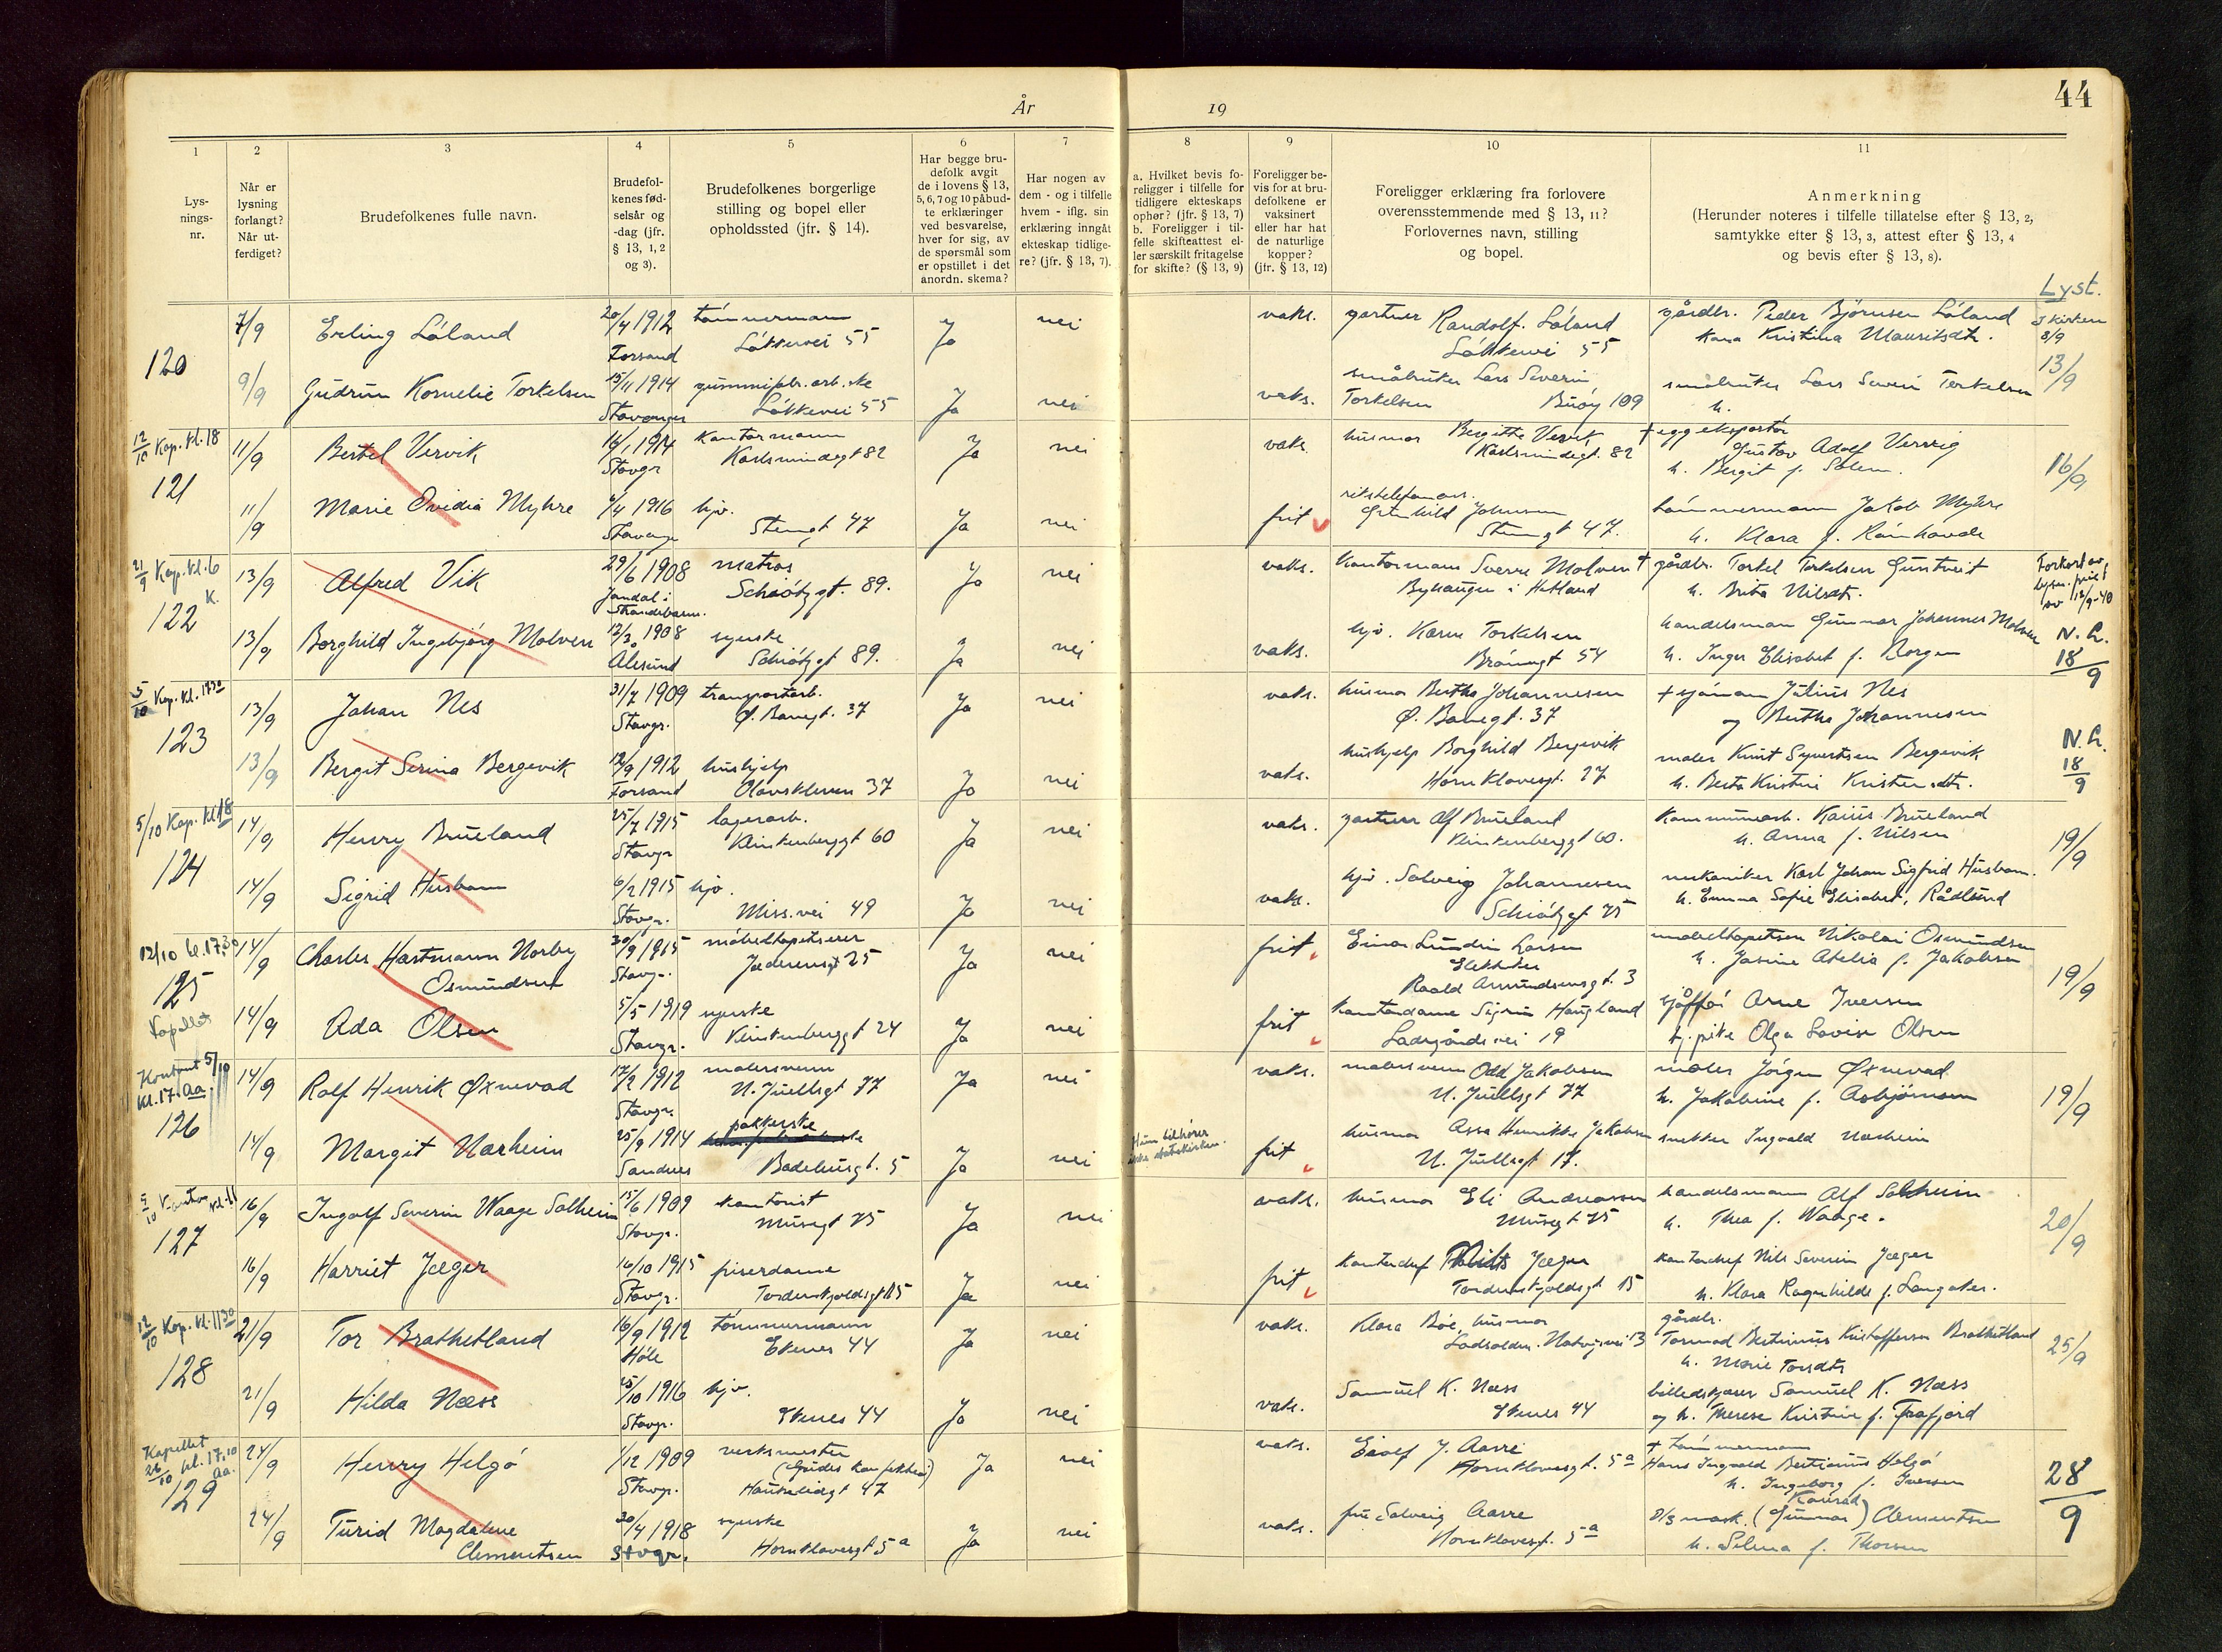 44
År 19
1 2 3 4 5 6 7 8 9 10 11
Lys-
nings-
nr.
Når er
lysning
forlangt?
Når ut-
ferdiget?
Brudefolkenes fulle navn.
Brudefol-
kenes fød-
selsår og
-dag (jfr.
§ 13, 1, 2
og 3).
Brudefolkenes borgerlige
stilling og bopel eller
opholdssted (jfr. § 14).
Har begge bru-
defolk avgit
de i lovens § 13,
5, 6, 7 og 10 påbud-
te erklæringer
ved besvarelse,
hver for sig, av
de spørsmål som
er opstillet i det
anordn. skema?
Har nogen av
dem - og i tilfelle
hvem - iflg. sin
erklæring inngåt
ekteskap tidlige-
re? (jfr. § 13, 7).
a. Hvilket bevis fo-
religger i tilfelle for
tidligere ekteskaps
ophør? (jfr. § 13, 7)
b. Foreligger i til-
felle skifteattest el-
ler særskilt fritagelse
for skifte? (§ 13, 9)
Foreligger be-
vis for at bru-
defolkene er
vaksinert
eller har hat
de naturlige
kopper?
(jfr. § 13, 12)
Foreligger erklæring fra forlovere
overensstemmende med § 13, 11?
Forlovernes navn, stilling
og bopel.
Anmerkning
(Herunder noteres i tilfelle tillatelse efter § 13, 2,
samtykke efter § 13, 3, attest efter § 13, 4
og bevis efter § 13, 8).
Lyst.
120
7/9 Erling Løland 20/4 1912 tømmermann Ja nei vaks. gartner Randolf Løland gårdbr. Peder Bjørnsen Løland I kirken
Forsand Løkkevei 55 Løkkevei 55 Kona Kristina Mauritsdtr. 8/9
9/9 Gudrun Kornelie Torkelsen 15/11 1914 gummifabr.arb.ske Ja nei vaks. småbruker Lars Severin småbruker Lars Severin Torkelsen 13/9
Stavanger Løkkevei 55 Torkelsen Buøy 109 h.
12/10 Kap. kl. 18
121
11/9 Bertel Vervik 1914 kontormann Ja nei vaks. husmor Bergitte Vervik + eggeksportør
Stavgr Karlsmindegt 82 Karlsmindegt. 82 Gustav Adolf Vervig
h. Bergit f. Solem. 16/9
11/9 Marie Ovidia Myhre 1916 hjv. Ja nei frit rikstelefonass. tømmermann Jakob Myhre
Stengt 47 Johnsen
Stengt 47. h. Klara f.
21/9 Kap. kl. 6
K.
122
13/9 Alfred Vik 29/6 1908 matros Ja nei vaks. Kontormann Sverre Molven + gårdbr. Torkel Torkelsen Guntveit
Jondal i
Strandebarm. Schiøtzgt. 89. Byhaugen i Hetland h. Brita Nilsdtr.
13/9 Borghild Ingebjørg Molven 12/3 1908 syerske Ja nei vaks. hjv. Karen Torkelsen handelsman Gunnar Johannes Molven N. L.
Ålesund Schiøtzgt 89. Brønngt 54 h. Inger Elisabet f. Borgen 18/9
5/10 Kap. kl. 17 30
123
13/9 Johan Nes 31/7 1909 transportarb. Ja nei vaks. husmor Bertha Johannesen + sjømann Julius Nes
Stavgr. Ø. Banegt. 37 Ø. Banegt. 37 og Bertha Johannesen
13/9 Bergit Serina Bergevik 12/9 1912 hushjelp Ja nei vaks. hushjelp Borghild Bergevik maler Knut Syvertsen Bergevik N. L.
Forsand Olavskleven 37 Hornklovesgt. 27 h. Berta Kristine Kristensdtr. 18/9
5/10 Kap. kl 18
124
14/9 Henry Brueland 25/7 1915 lagerarb. Ja nei vaks. gartner Alf Brueland Kommunearb. Kaius Brueland
Stavgr Klinkenberggt 60 Klinkenberggt 60. h. Anna f. Nilsen 19/9
14/9 Sigrid Husbam 6/2 1915 hjv. Ja nei vaks. hjv. Solveig Johannesen mekaniker Karl Johan Sigfrid Husbam.
Stavgr. Miss.vei 49 Schiøtzgt 75 h. Emma Sofie Elisabet, Rådlund
12/10 kl. 17,30
125
Kapellet
14/9 Charles Hartmann Norby 30/9 1915 møbeltapetserer Ja nei frit Einar Lundin Larsen møbeltapetserer Nikolai Osmundsen
Osmundsen Stavgr. Jæderensgt 25 Elektriker h. Josine Atelia f. Jakobsen
Roald Amundsensgt. 3 19/9
14/9 Ada Olsen 5/5 1919 syerske Ja nei frit kontordame Sigrun Haugland sjåffør Arne Iversen
Stavgr. Klinkenberggt 24 Ladegårdsvei 19 tj.pike Olga Lovise Olsen
Kontoret 5/10
kl. 17. Aa
126
14/9 Rolf Henrik Øxnevad 17/2 1912 malersvenn Ja nei vaks. malersvenn Odd Jakobsen maler Jørgen Øxnevad
Stavgr. N. Juellsgt 77 N. Juellsgt 77 h. Jakobine f. Asbjørnsen 19/9
14/9 Margit Norheim 25/9 1914 pakkerske Ja nei Hun tilhører
ikke statskirken. frit husmor Assa Henrikke Jakobsen snekker Ingvald Norheim
Sandnes Badehusgt. 5 N. Juellsgt 17.
127
16/9 Ingolf Severin Waage Solheim 15/6 1909 kontorist Ja nei vaks. husmor Eli Andreassen handelsmann Alf Solheim
Stavgr. Musegt 75 Musegt 75 h. Thea f. Waage. 20/9
16/9 Harriet Jæger 16/10 1915 friserdame Ja nei frit kontorchef Nils Jæger kontorchef Nils Severin Jæger
Stavgr. Tordenskjoldsgt 15 Tordenskjoldsgt 15 h. Klara Ragnhilde f. Langaker.
12/10 Kap. kl. 11 30
128
21/9 Tor Brathetland 16/9 1912 tømmermann Ja nei vaks. Klara Bøe, husmor gårdbr.
Høle Ekenes 44 Tormod Bertinius Kristoffersen Brathetland 25/9
h. Marie Torsdtr
21/9 Hilda Næss 25/10 1916 hjv. Ja nei vaks. Samuel K. Næss billedskjærer Samuel K. Næss
Stavgr. Ekenes 44 Ekenes 44 og h. Therese Kristine f. Frafjord
Kapellet
26/10 kl. 17,10
Aa.
129
24/9 Henry Helgø 1/12 1909 verksmester Ja nei vaks. Eilof J. Aarre + tømmermann
Stavgr. Haukeligt 47 Hornklovesgt. 5a Hans Ingvald Bertinius Helgø
h. Ingeborg f. Iversen 28/9
24/9 Turid Magdalene 30/4 1918 syerske Ja nei vaks. fru Solveig Aarre D/S mask. (Gunnar) Konrad Clementsen
Clementsen Stvgr. Hornklovesgt 5a Hornklovesgt. 5a h. Selma f. Thorsen